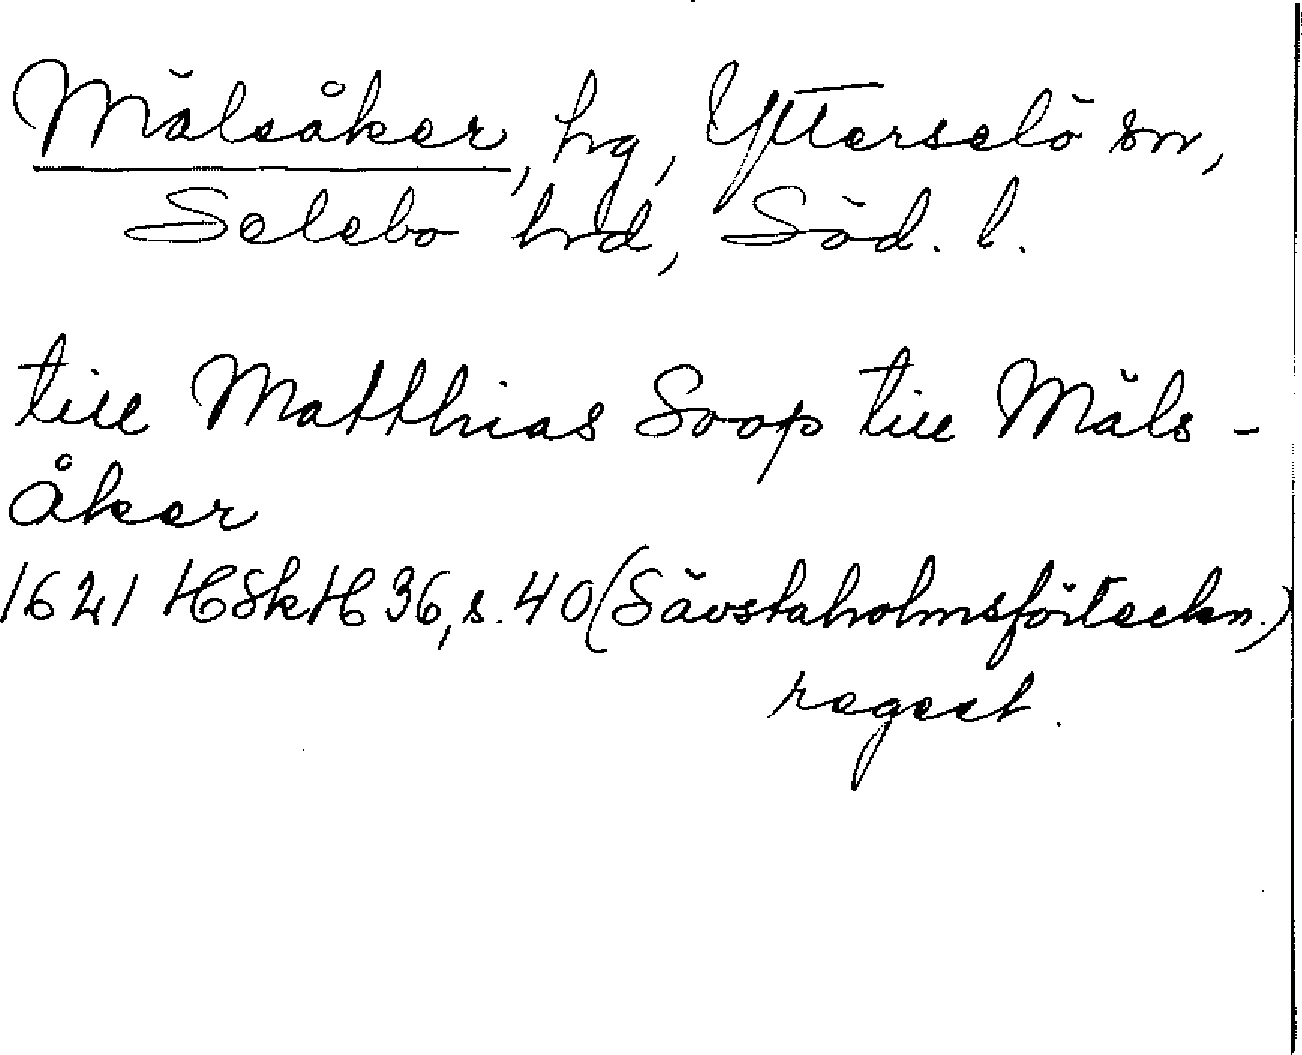 Mälsåker, hg, Ytterselö sn,
Selebo hrd, Söd. l.
till Matthias Soop till Mäls-
åker
1621 HSkH 36, s. 40 (Sävstaholmsförteckn.)
regest.